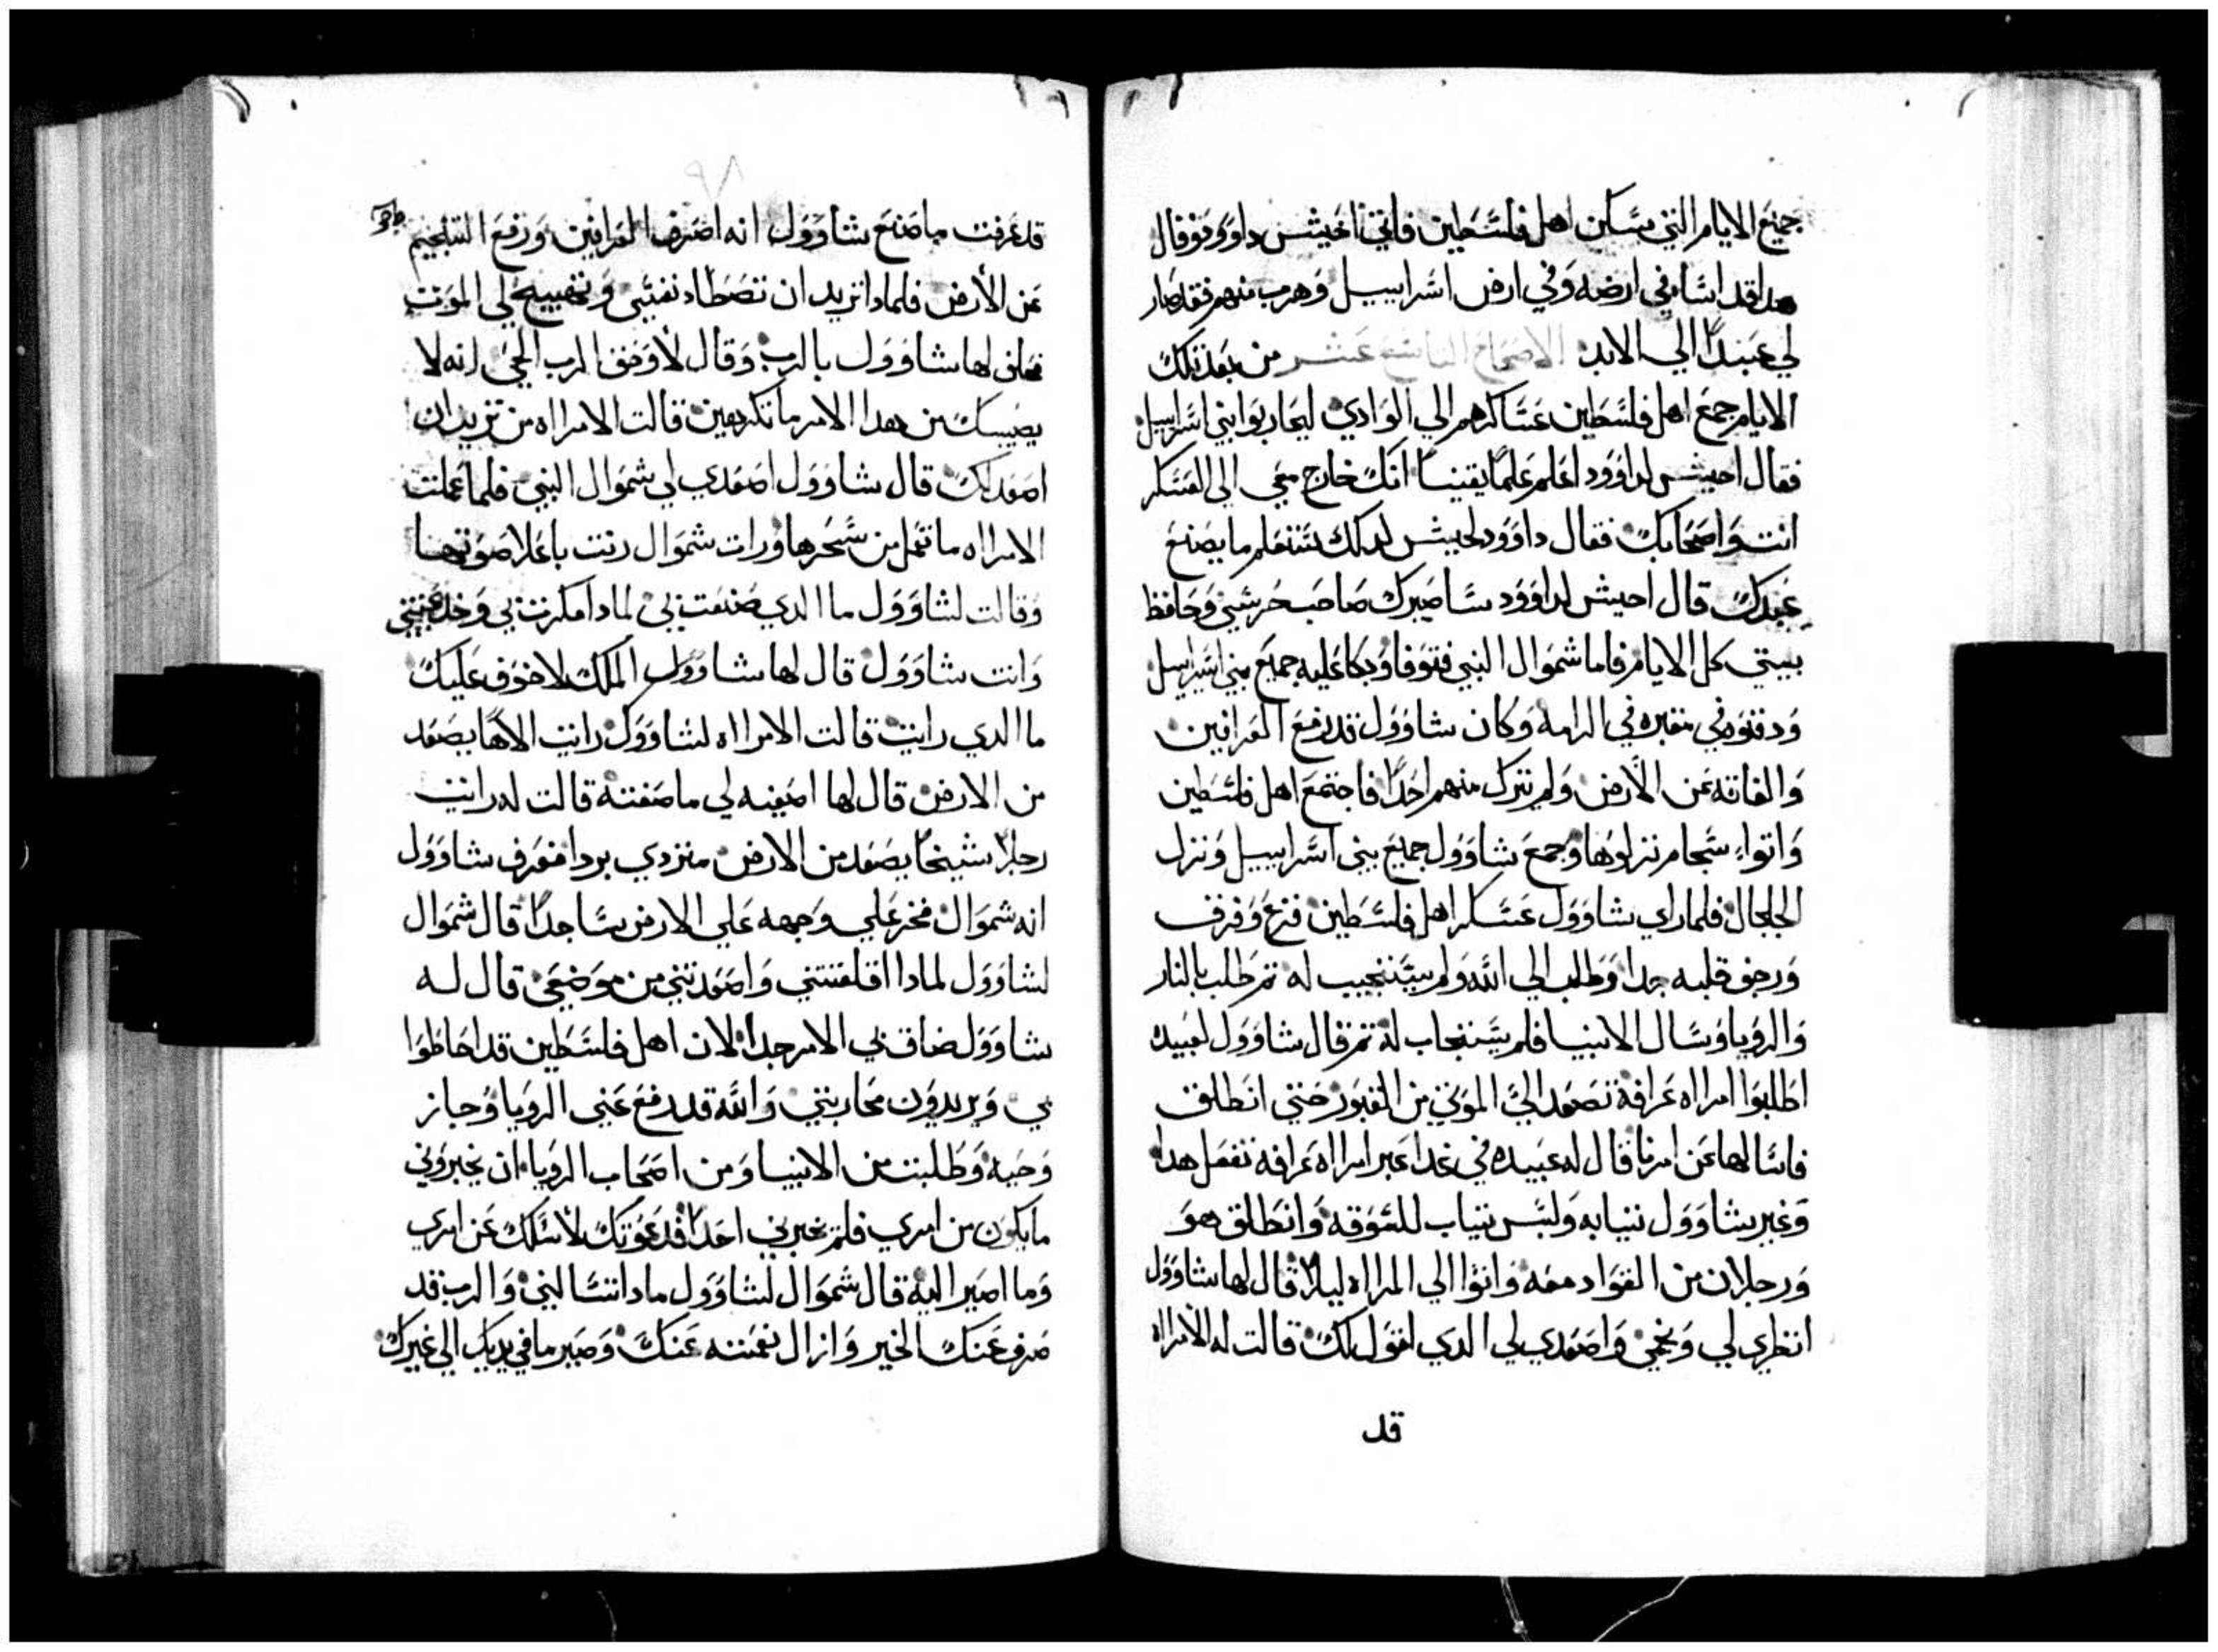 جميع الايام التي سكن اهل فلسطين فاتمن اخيش داوود وقال
هدا قد اسا في ارضه وفي ارض اسراييل وهرب منهم فقد صار
لي عبدًا الي الابد الاصحاح عشر من بعد تلك
الايام جمع اهل فلسطين عساكرهم الي الوادي ليحاربوا بني اسراييل
فقال احيش لداوود اعلم علمًا يقينًا انك خارج معي الي العسكر
انت واصحابك فقال داوود لحيش لدلك ستعلم ما يصنع
عبدك قال احيش لداوود ساصيرك صاحب حرسي وحافظ
بيتي كل الايام فاما شموال النبي فتوفا وبكا عليه جميع بني اسراييل
ودفنوه في مقبره في الرامه وكان شاوول قد رفع العرافين
والقافه عن الارض ولم تترك منهم احدًا فاجتمع اهل فلسطين
واتوا سجام نزلوها وجمع شاوول جميع بني اسراييل ونزل
الجلجال فلما راي شاوول عسكر اهل فلسطين فزع وفرق
ورجف قلبه جدا وطلب الي الله ولم يستجيب له ثم طلب بالنار
والرويا وسال الانبيا فلم يستجاب له ثم قال شاوول لعبيده
اطلبوا امراه عرافة تصعد الي الموتي من القبور حتي انطلق
فاسالها عن امرنا قال له عبيده في غدا عبر امراه عرافه تفعل هدا
وغير شاوول ثيابه ولبس ثياب للسوقه وانطلق هو
ورجلان من القواد معه واتوا الي المراه ليلا قال لها شاوول
انظري لي ونجمي واصعدي لي الدي اقول لك قالت له الامراه
قد
قد عرفت ما صنع شاوول انه اصرف العرافين ورفع التنجيم
عن الارض فلمادا تريد ان تصطاد نفسي وتهييج لي الموت
فحلف لها شاوول بالرب وقال لا وحق الرب الحي انه لا
يصيبك من هدا الامر ما تكرهين قالت الامراه من تريد ان
اصعد لك قال شاوول اصعدي لي شموال النبي فلما عملت
الامراه ما تعمل من سحرها ورات شموال رنت باعلا صوتها
وقالت لشاوول ما الدي صنعت بي لمادا مكرت بي وخدعتيني
وانت شاوول قال لها شاوول الملك لا خوف عليك
ما الدي رايت قالت الامراه لشاوول رايت الاهًا يصعد
من الارض قال لها اصفيه لي ما صفته قالت له رايت
رجلا شيخًا يصعد من الارض متردي بردا فعرف شاوول
انه شموال فخر علي وجهه علي الارض ساجدًا قال شموال
لشاوول لمادا اقلقتني واصعدتني من موضعي قال له
شاوول ضاق بي الامر جدا لان اهل فلسطين قد احاطوا
بي ويريدون محاربتي والله قد رفع عني الرويا وجاز
وحيه وطلبت من الانبيا ومن اصحاب الرويا ان يخبروني
ما يكون من امري فلم يخبرني احدًا فدعوتك لاسلك عن امري
وما اصير اليه قال شموال لشاوول مادا تسالني والرب قد
صرف عنك الخير وازال نعمته عنك وصير ما في يديك الي غيرك